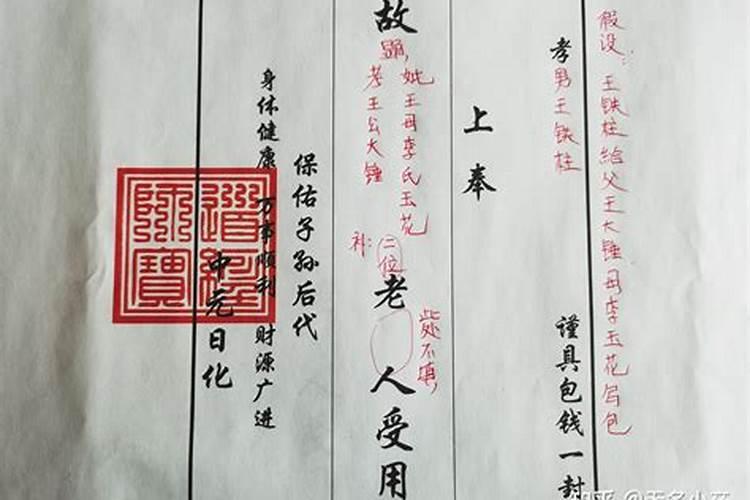 假设：王铁柱给父王大锤母李玉花写包
孝男王铁柱 谨具包钱一封
上奉
故显，
妣王母李氏玉花
考王公大锤
补：二位
老人受用
此处不填，
保佑子孙后代
身体健康 万事顺利 财源广进
中元日化
道經師寶
知乎